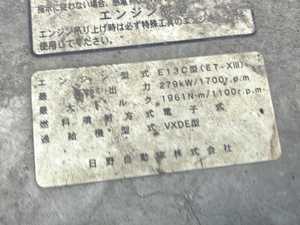 指示に従わない場合、感電
エンジン
エンジン吊り上げ時は必ず特殊工具のエンジンス
使用してください。
エンジン型式 E13C型(ET-XIII)
最大出力 279kW/1700r.p.m
最大トルク 1961N·m/1100r.p.m
燃料噴射方式 電子式
過給機型式 VXDE型
日野自動車株式会社